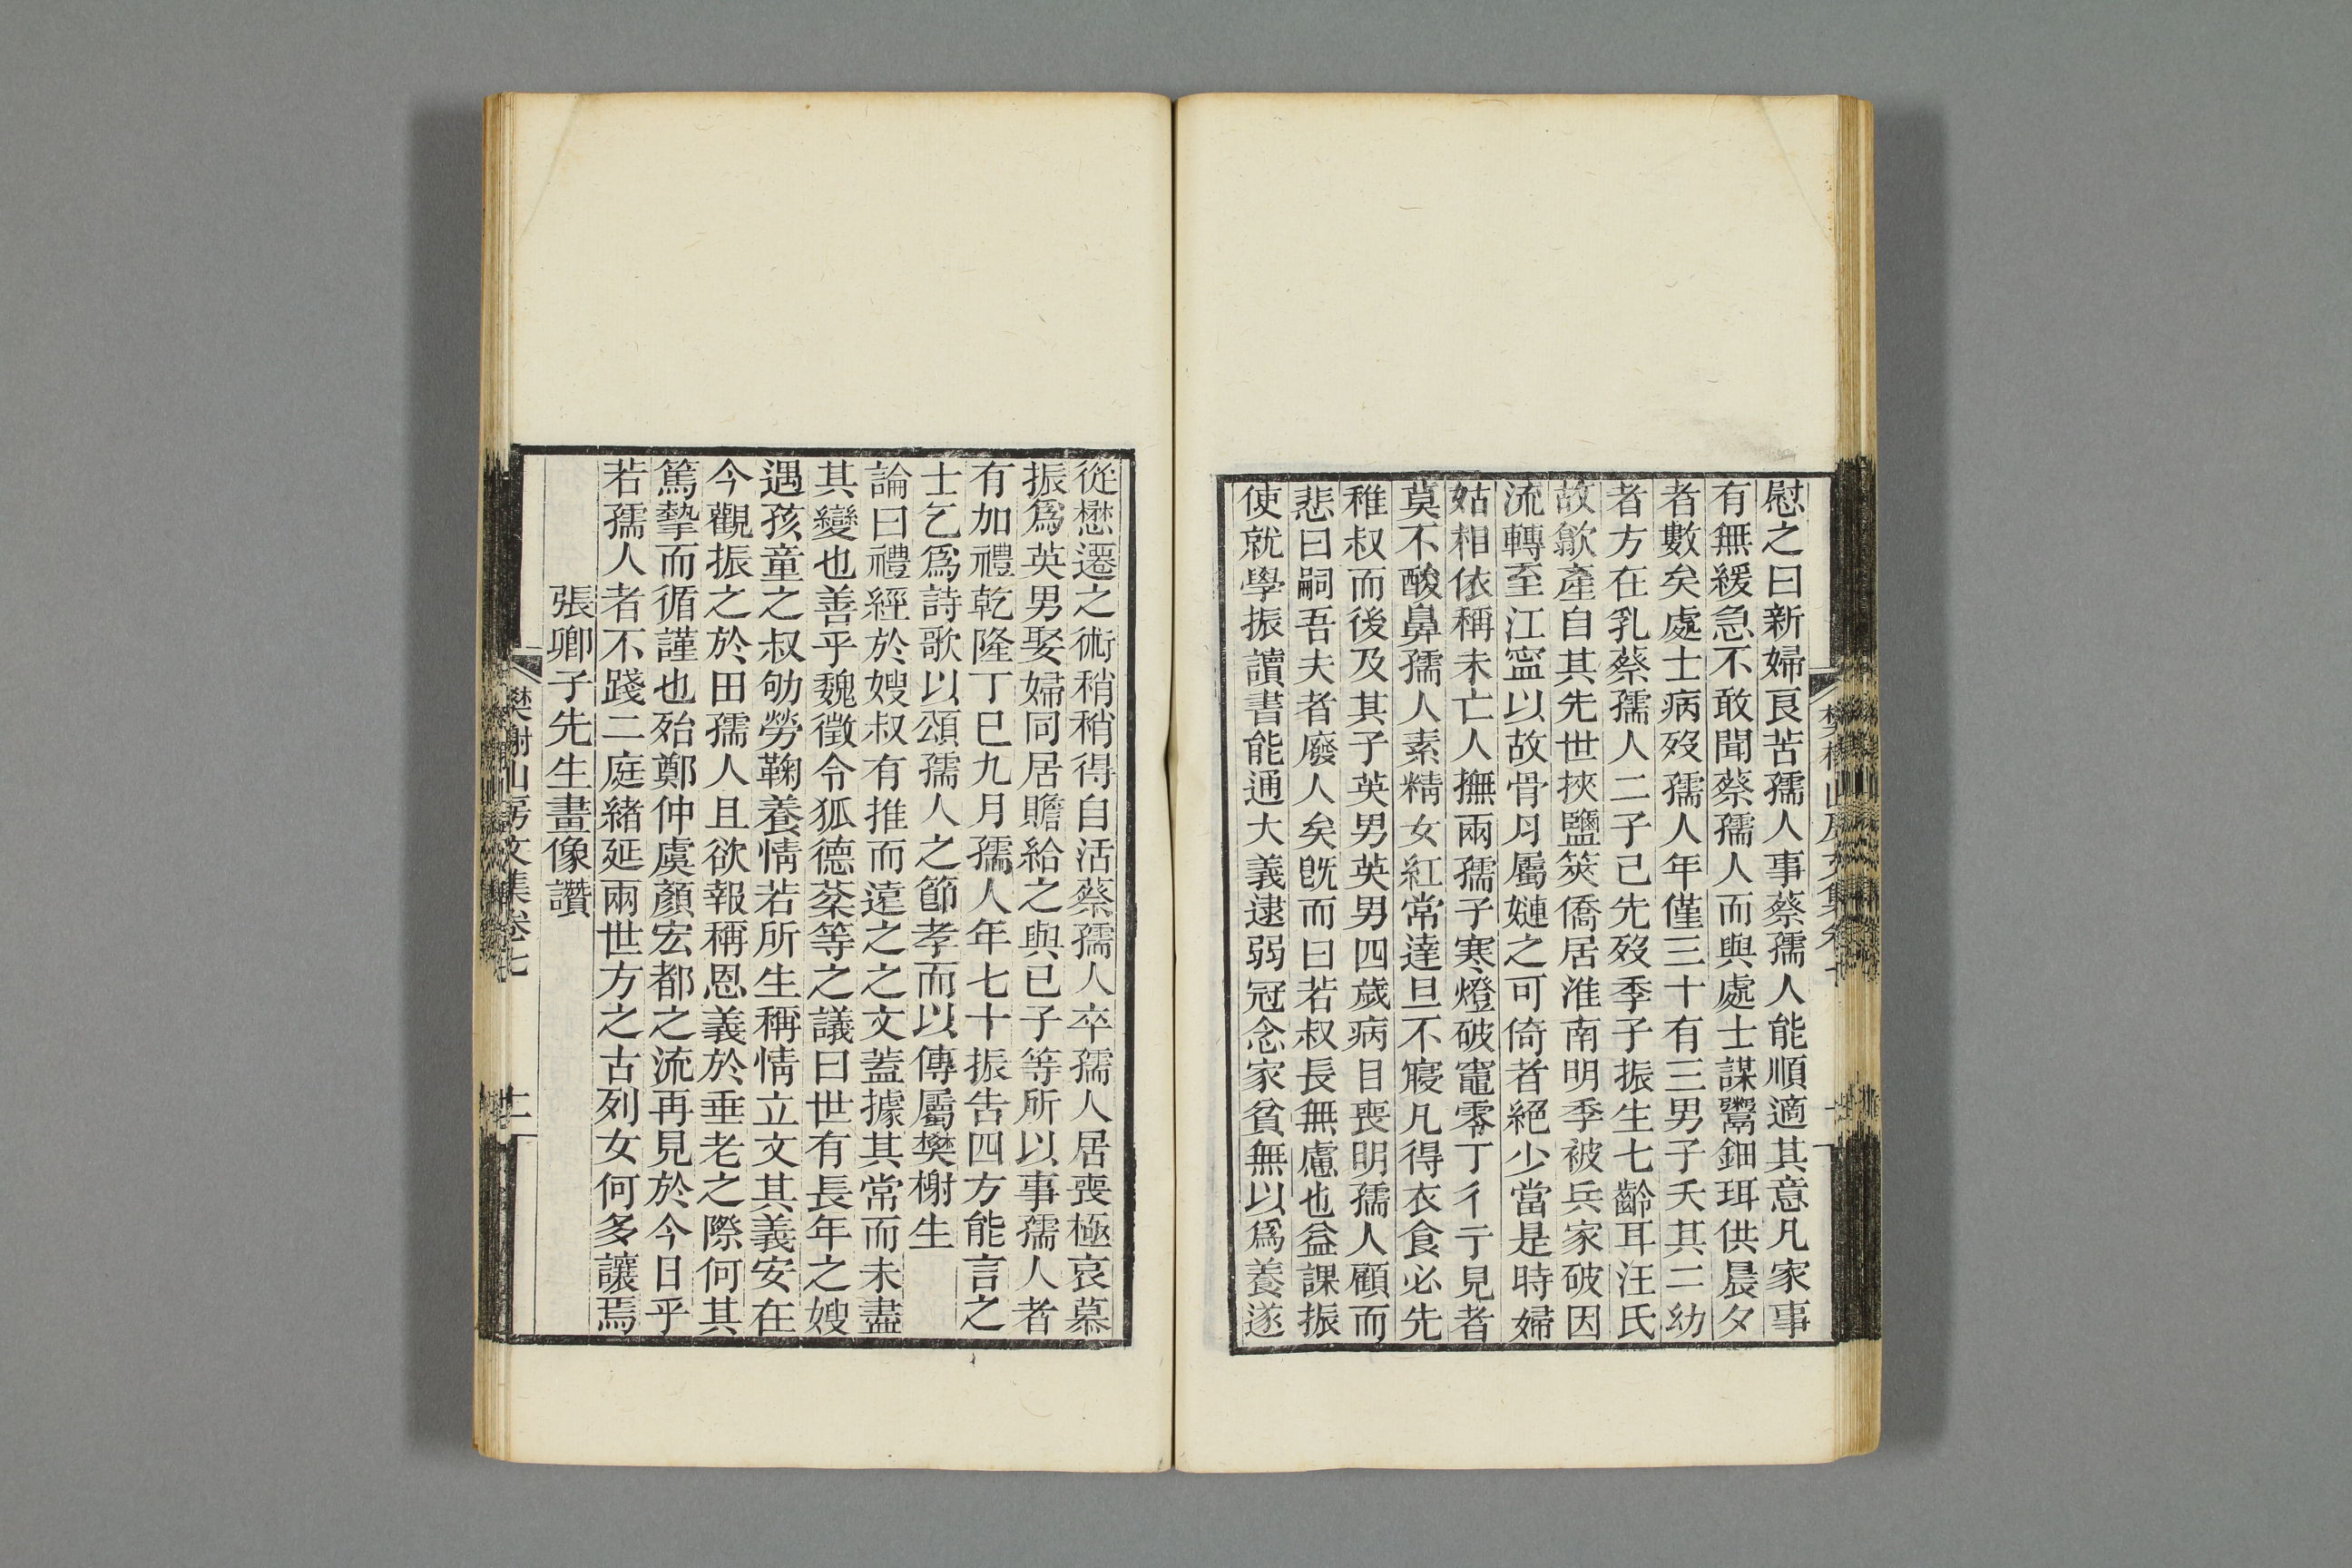 慰之曰新婦良苦孺人事蔡孺人能順適其意凡家事
有無緩急不敢聞蔡孺人而與處士謀鬻鈿珥供晨夕
者數矣處士病歿孺人年僅三十有三男子夭其二幼
者方在乳蔡孺人二子己先歿季子振生七齡耳汪氏
故歙產自其先世挾鹽筴僑居淮南明季被兵家破因
流轉至江寍以故骨月屬嫤之可倚者絕少當是時婦
姑相依稱未亡人撫兩孺子寒燈破竈零丁彳亍見者
莫不酸鼻孺人素精女紅常達旦不寢凡得衣食必先
稚叔而後及其子英男英男四歲病目喪明孺人顧而
悲曰嗣吾夫者廢人矣旣而曰若叔長無慮也益課振
使就學振讀書能通大義逮弱冠念家貧無以爲養遂
從懋遷之術稍稍得自活蔡孺人卒孺人居喪極哀慕
振爲英男娶婦同居贍給之與已子等所以事孺人者
有加禮乾隆丁巳九月孺人年七十振告四方能言之
士乞爲詩歌以頌孺人之節孝而以傳屬樊榭生
論曰禮經於嫂叔有推而遠之之文蓋據其常而未盡
其變也善乎魏徵令狐德棻等之議曰世有長年之嫂
遇孩童之叔劬勞鞠養情若所生稱情立文其義安在
今觀振之於田孺人且欲報稱恩義於垂老之際何其
篤摯而循謹也殆鄭仲虞顏宏都之流再見於今日乎
若孺人者不踐二庭緒延兩世方之古列女何多讓焉
張卿子先生畫像讚
樊榭山房文集卷七
二